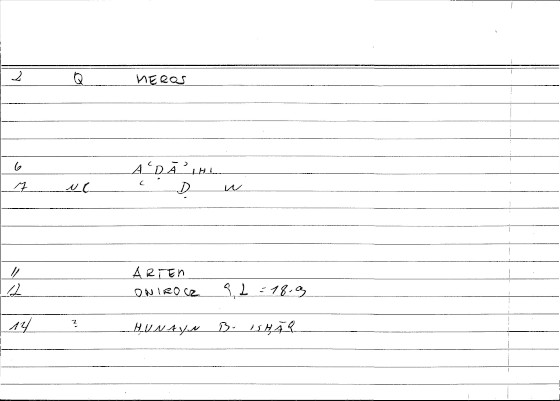 2 Q MEROS
6 AʿḌĀʾIHI
7 NC ʿ Ḍ W
11 ARTEM
12 ONIROCR 9,2 = 18.9
14 ? ḤUNAYN B. ISḤĀQ